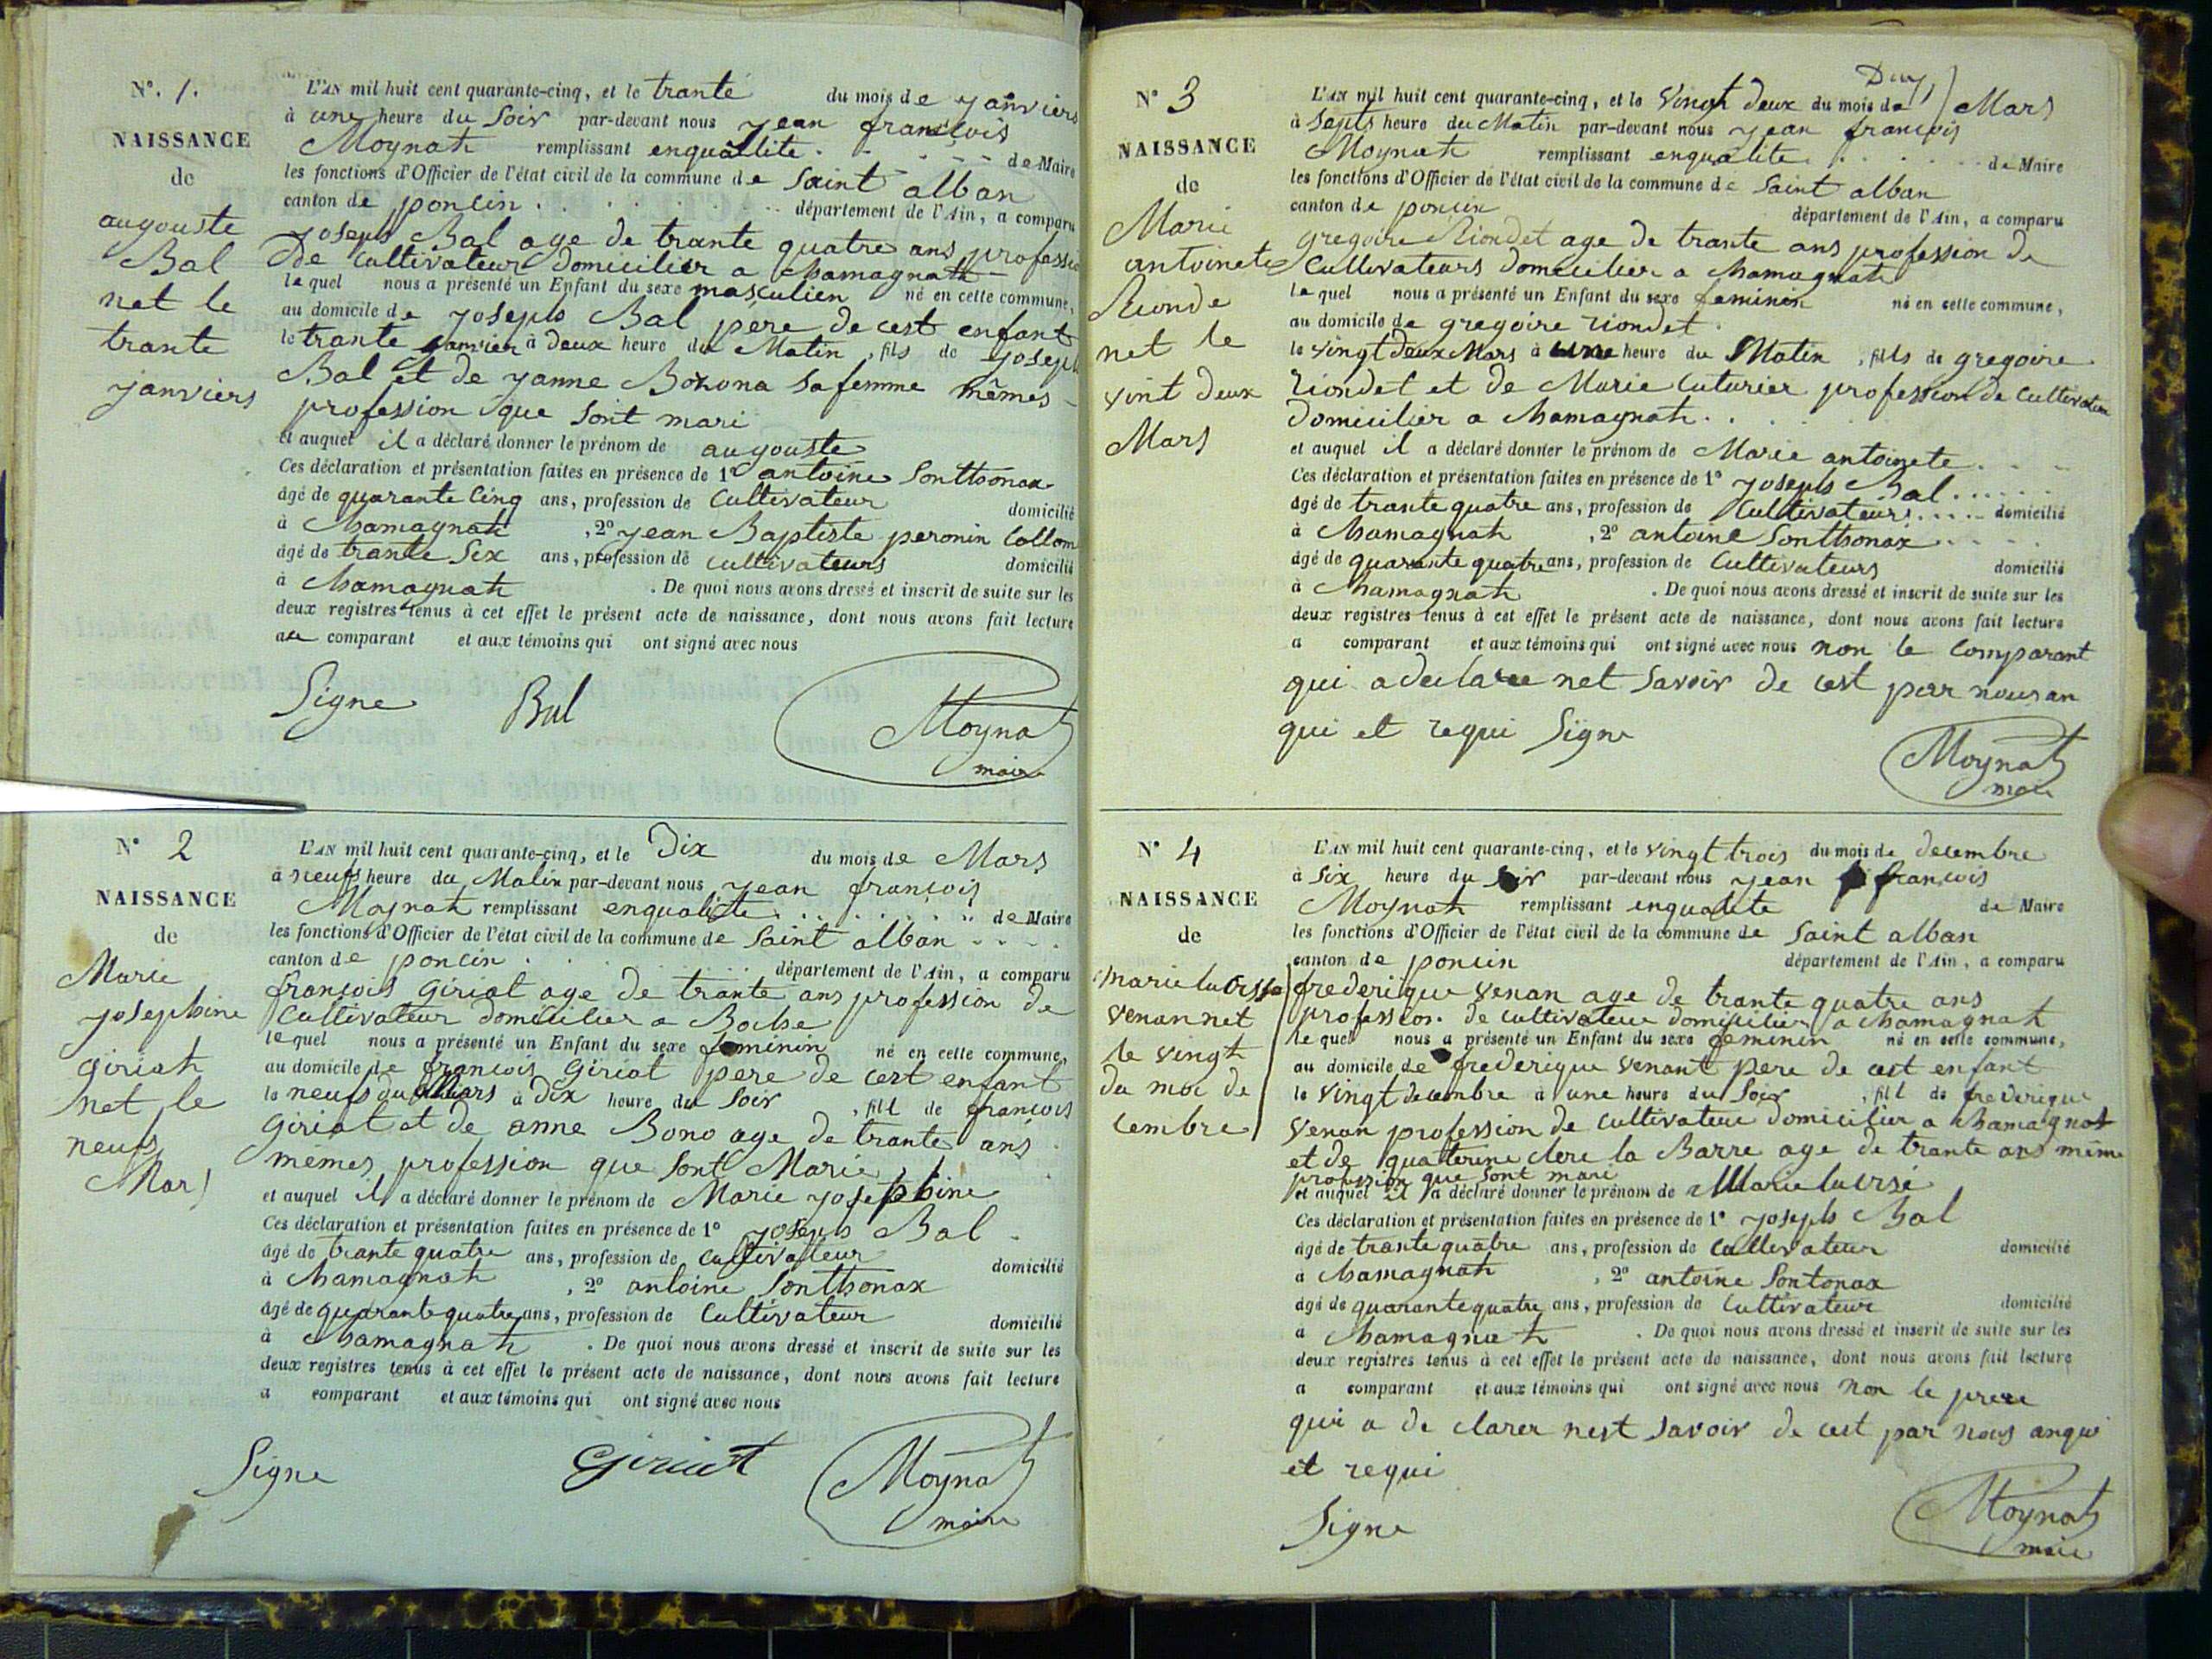 N°. 1.
NAISSANCE
de
augouste
Bal
net le
trante
janviers
L'AN mil huit cent quarante-cinq, et le trante du mois de janviers
à une heure du Soir par-devant nous jean françois
Moynat remplissant enquallite de Maire
les fonctions d'Officier de l'état civil de la commune de Saint alban
canton de poncin département de l'Ain, a comparu
joseph Bal age de trante quatre ans professio
de cultivateur domicilier a Chamagnat
le quel nous a présenté un Enfant du sexe masculien né en cette commune,
au domicile de joseph Bal père de cest enfant
le trante janvier à deux heure du Matin, fils de joseph
Bal et de janne Bozona Sa femme mêmes
profession que Sont mari
et auquel il a déclaré donner le prénom de augouste
Ces déclaration et présentation faites en présence de 1° antoine Sonthonax
âgé de quarante Cinq ans, profession de Cultivateur domicilié
à Chamagnat, 2° jean Baptiste peronin Collom
âgé de trante Six ans, profession de cultivateurs domicilié
à Chamagnat. De quoi nous avons dressé et inscrit de suite sur les
deux registres tenus à cet effet le présent acte de naissance, dont nous avons fait lecture
au comparant et aux témoins qui ont signé avec nous
Signe Bal Moynat
maire
N° 2
NAISSANCE
de
Marie
josephine
giriat
net le
neufs
Mars
L'AN mil huit cent quarante-cinq, et le Dix du mois de Mars
à neufs heure du Matin par-devant nous jean françois
Moynat remplissant enqualite de Maire
les fonctions d'Officier de l'état civil de la commune de Saint alban
canton de poncin département de l'Ain, a comparu
françois giriat age de trante ans profession de
Cultivateur domicilier a Boche
le quel nous a présenté un Enfant du sexe feminin né en cette commune,
au domicile de françois Giriat pere de cest enfant
le neufs du Mars à Dix heure du Soir, fill de françois
Giriat et de anne Bono age de trante ans
memes profession que Sont Marie
et auquel il a déclaré donner le prénom de Marie josephine
Ces déclaration et présentation faites en présence de 1° joseph Bal
âgé de trante quatre ans, profession de Cultivateur domicilié
à Chamagnat, 2° antoine Sonthonax
âgé de quarante quatre ans, profession de Cultivateur domicilié
à Chamagnat. De quoi nous avons dressé et inscrit de suite sur les
deux registres tenus à cet effet le présent acte de naissance, dont nous avons fait lecture
a comparant et aux témoins qui ont signé avec nous
Signe Giriat Moynat
maire
N° 3
NAISSANCE
de
Marie
antoinete
Rionde
net le
vint deux
Mars
L'AN mil huit cent quarante-cinq, et le Vingt deux du mois de Mars
à Septs heure du Matin par-devant nous jean françois
Moynat remplissant enqualite de Maire
les fonctions d'Officier de l'état civil de la commune de Saint alban
canton de poncin département de l'Ain, a comparu
gregoire Riondet age de trante ans profession de
Cultivateurs domicilier a Chamagnat
le quel nous a présenté un Enfant du sexe feminin né en cette commune,
au domicile de gregoire riondet
le vingt deux Mars à une heure du Matin, fills de gregoire
riondet et de Marie Cuturier profession de Cultivateur
domicilier a Chamagnat
et auquel il a déclaré donner le prénom de Marie antoinete
Ces déclaration et présentation faites en présence de 1° joseph Bal
âgé de trante quatre ans, profession de Cultivateurs domicilié
à Chamagnat, 2° antoine Sonthonax
âgé de quarante quatre ans, profession de Cultivateurs domicilié
à Chamagnat. De quoi nous avons dressé et inscrit de suite sur les
deux registres tenus à cet effet le présent acte de naissance, dont nous avons fait lecture
a comparant et aux témoins qui ont signé avec nous non le Comparant
qui a declaree net Savoir de cest par nous an
qui et requi Signe
Moynat
maire
N° 4
NAISSANCE
de
marie
venan net
le vingt
du moi de
Cembre
L'AN mil huit cent quarante-cinq, et le vingt trois du mois de decembre
à Six heure du Soir par-devant nous jean françois
Moynat remplissant enqualite de Maire
les fonctions d'Officier de l'état civil de la commune de Saint alban
canton de poncin département de l'Ain, a comparu
frederique venan age de trante quatre ans
profession de cultivateur domicilier a Chamagnat
le quel nous a présenté un Enfant du sexe feminin né en cette commune,
au domicile de frederique venant pere de cest enfant
le vingt decembre à une heure du Soir, fill de frederique
venan profession de Cultivateur domicilier a Chamagnat
et de quaterine clere la Barre age de trante ans même
profession que Sont mari
et auquel il a déclaré donner le prénom de Marie
Ces déclaration et présentation faites en présence de 1° joseph Bal
âgé de trante quatre ans, profession de Cultivateur domicilié
à Chamagnat, 2° antoine Sontonax
âgé de quarante quatre ans, profession de Cultivateur domicilié
à Chamagnat. De quoi nous avons dressé et inscrit de suite sur les
deux registres tenus à cet effet le présent acte de naissance, dont nous avons fait lecture
a comparant et aux témoins qui ont signé avec nous non le
qui a de clarer nest Savoir de cest par nous anqui
et requi
Signe
Moynat
maire